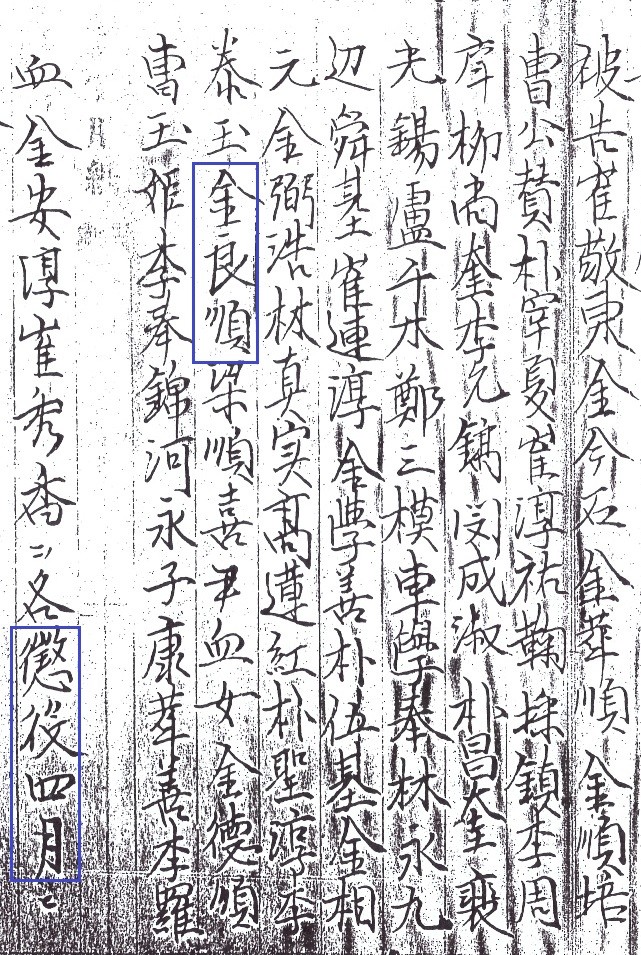 被告崔敬東金今石金華順金順培
曺公賛朴宰夏崔淳祐鞠採鎮李周
彦柳尚奎李允鎬閔成淑朴昌奎裵
光錫盧千木鄭三模車學奉林永九
辺舜基崔連淳金學善朴伍基金相
元金弼浩林真実髙蓮紅朴聖淳李
泰玉金良順梁順喜尹血女金徳順
曺玉姫李奉錦河永子康華善李羅
血金安淳崔秀香ニ各懲役四月ニ